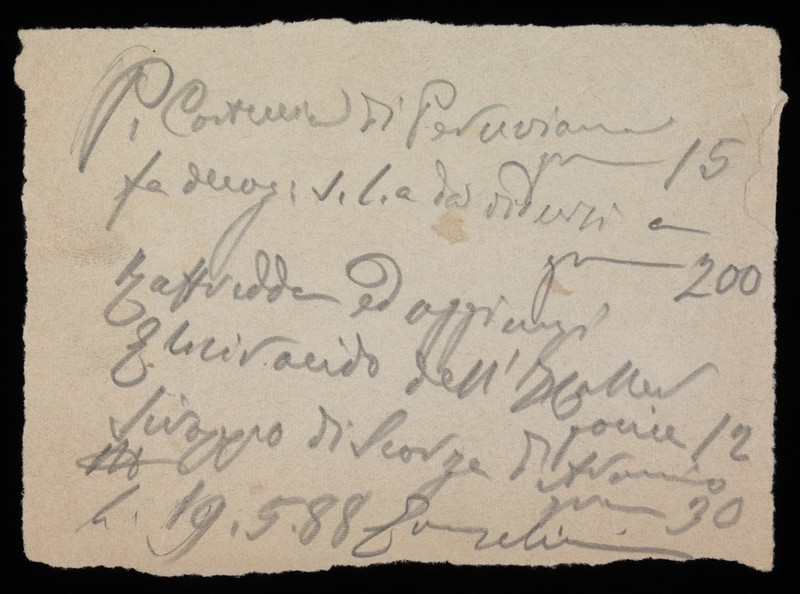 P. Corteccia di Peruviana
gm 15
fa decoz: s. l. a da ridursi a
gm 200
Raffredda ed aggiungi
Elisir acido dell' Haller
gocce 12
Siroppo di Scorze di Arancio
gm 30
li. 19.5.88